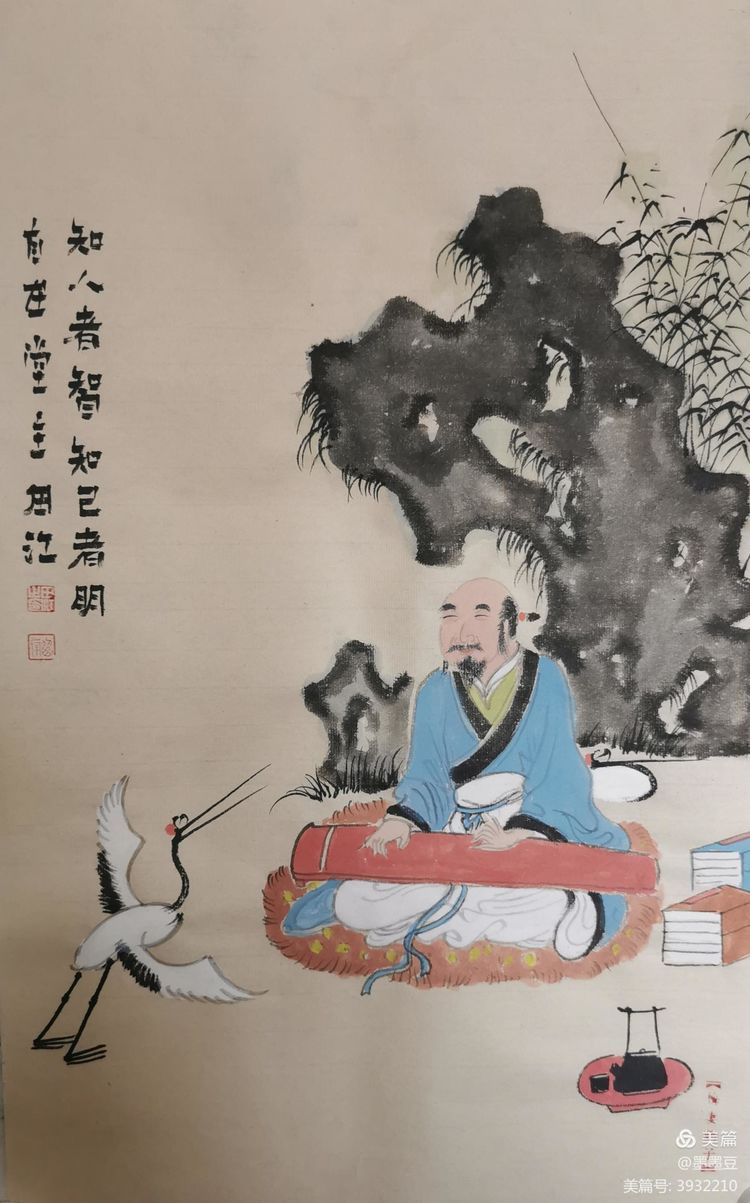 知人者智知己者明
自在堂主周江
美篇
@墨墨豆
美篇号: 3932210